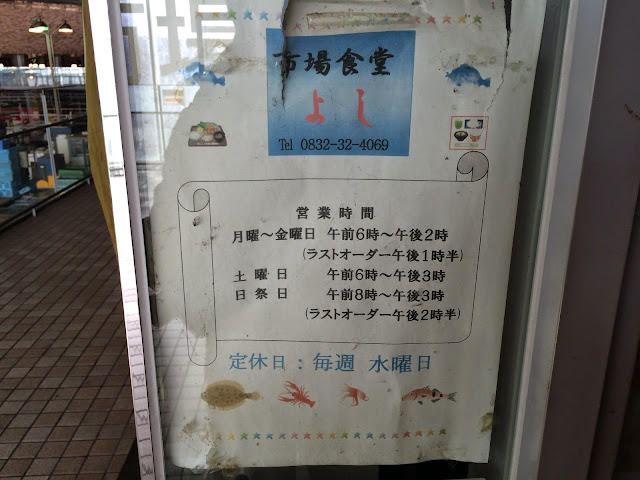 市場食堂
よし
Tel 0832-32-4069
営業時間
月曜～金曜日 午前6時～午後2時
(ラストオーダー午後1時半)
土曜日 午前6時～午後3時
日祭日 午前8時～午後3時
(ラストオーダー午後2時半)
定休日：毎週 水曜日